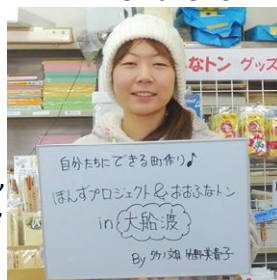 なトン グッズ
自分たちにできる町作り♪
ぼんずプロジェクト&おおふなトン
in 大船渡
By